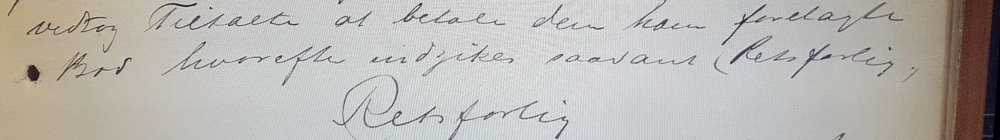 vedtog Tiltalte at betale dem ham forelagte
Bod hvorefter indgikes saadant Retsforlig,
Retsforlig